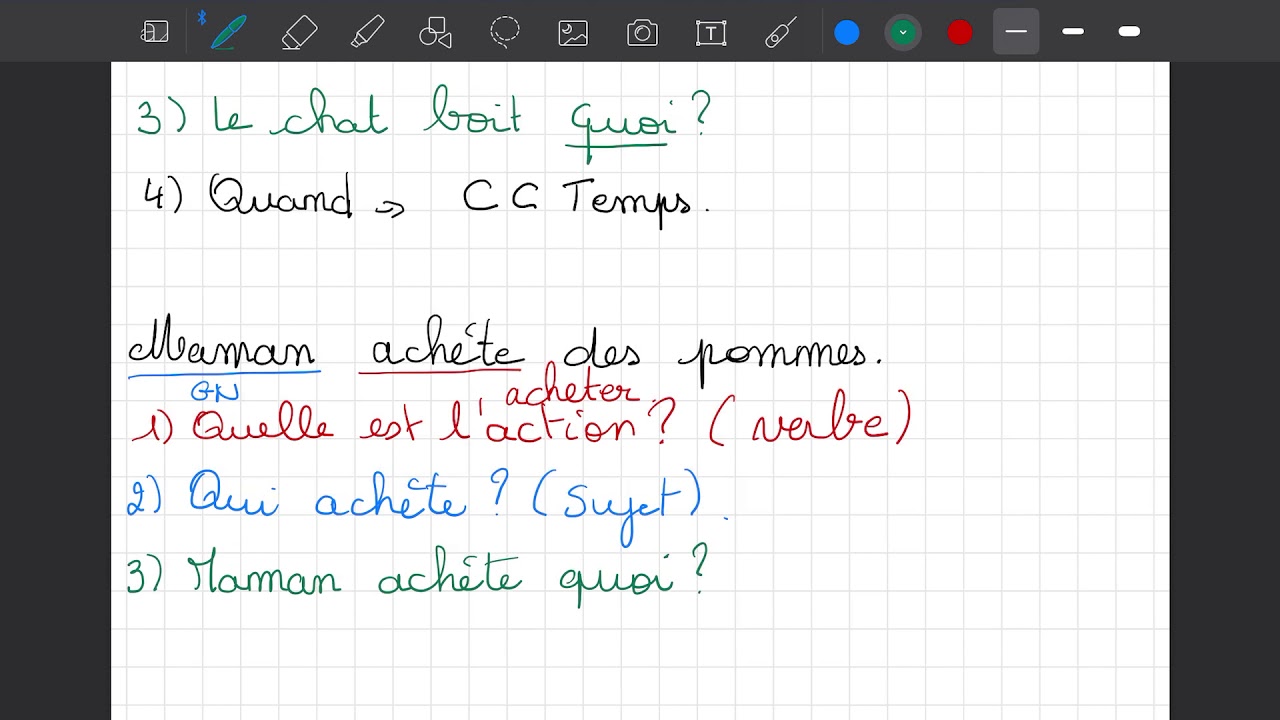 3) Le chat boit quoi ?
4) Quand → CC Temps.
Maman achète des pommes.
GN
acheter.
1) Quelle est l'action ? ( verbe )
2) Qui achète ? ( sujet ) .
3) Maman achète quoi ?